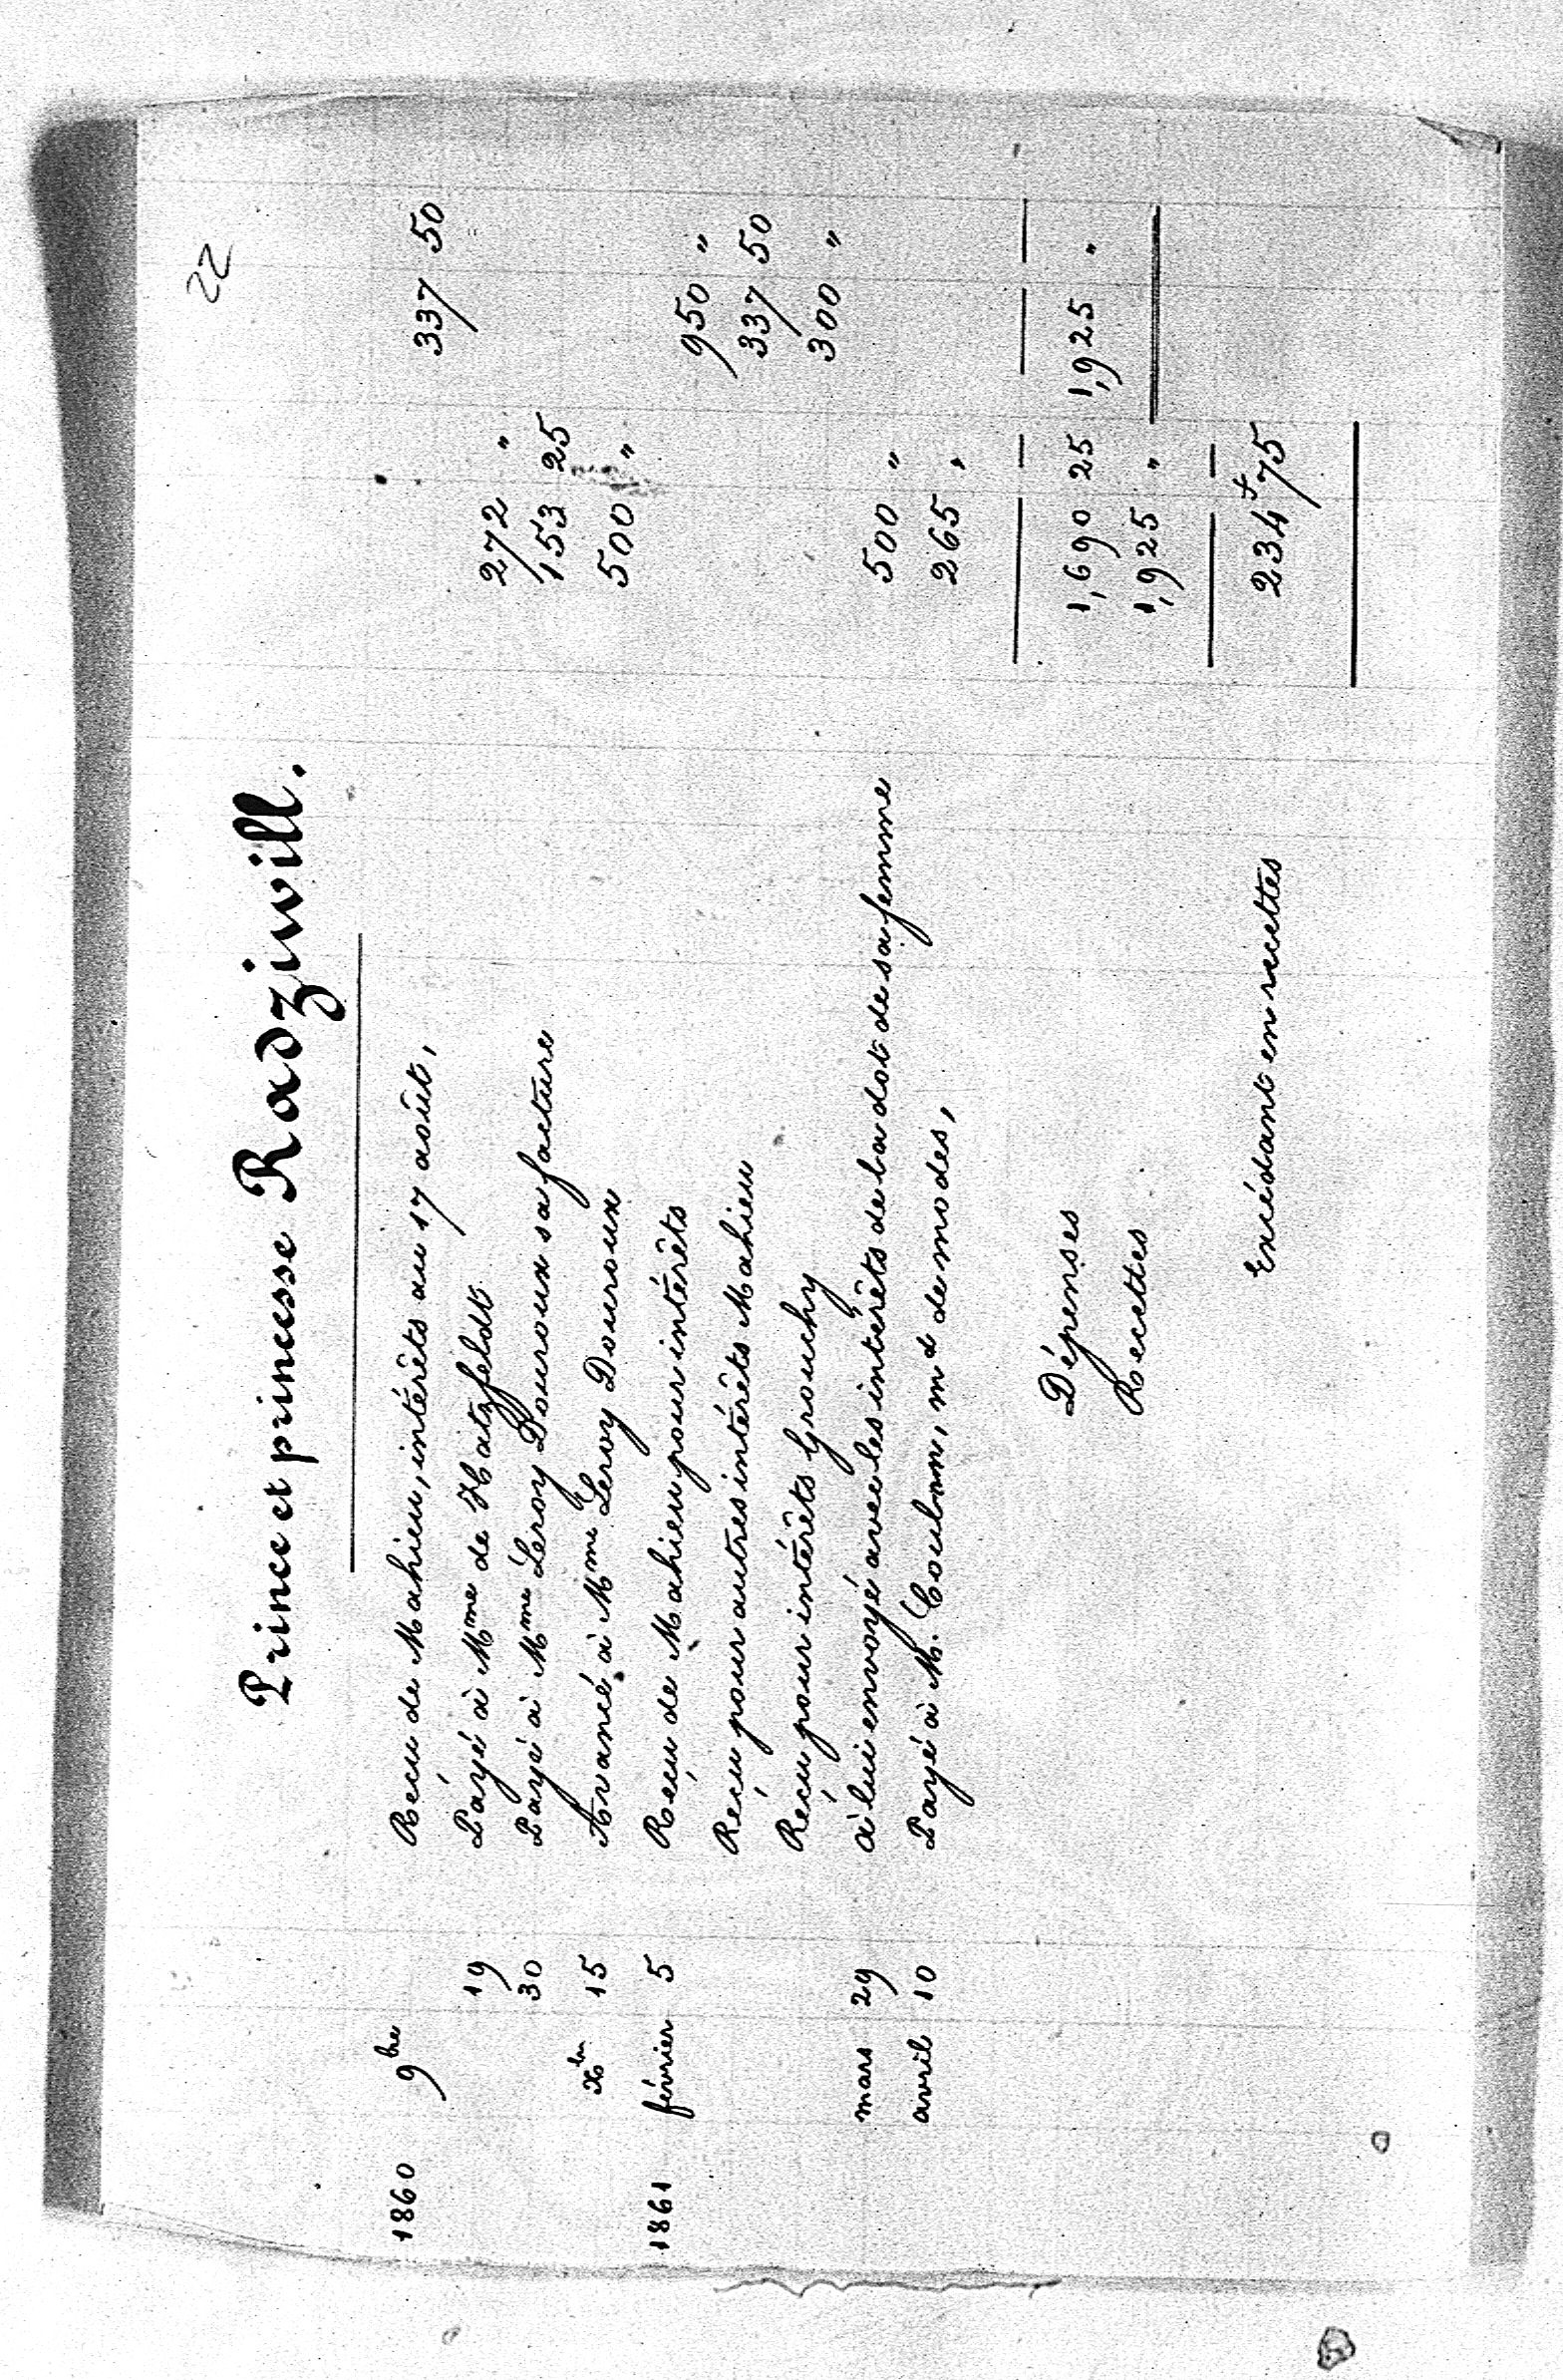 22
Prince et princesse Radziwill.
1860 9bre Recu de Mahieu, intérêts au 17 août, 337 50
19 Payé à Mme de Hatzfeldt 272 "
30 Payé à Mme Leroy Douroux sa facture 153 25
Xbre 15 Avancé à Mme Leroy Douroux 500 "
1861 février 5 Reçu de Mahieu pour intérêts 950 "
Reçu pour autres intérêts Mahieu 337 50
Reçu pour intérêts Grouchy 300 "
mars 29 à lui envoyé avec les intérêts de la dot de sa femme 500 "
avril 10 Payé à M. Coulon, md de modes, 265 "
Dépenses 1,690 25 1,925 "
Recettes 1,925 "
Excédant en recettes 234f 75